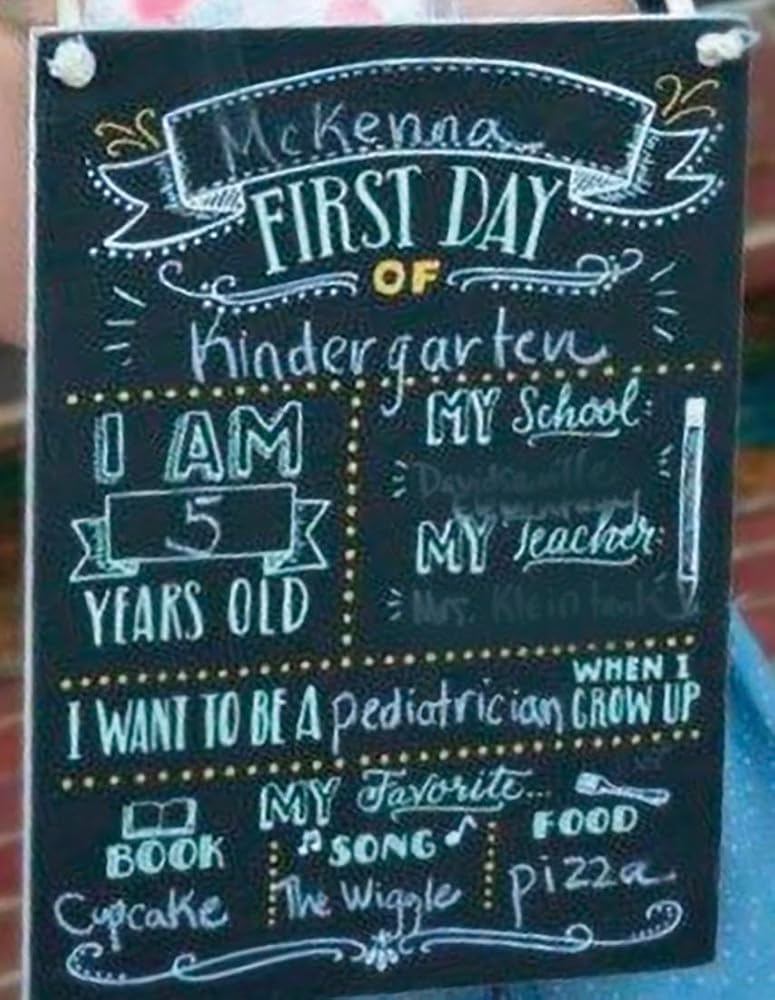 McKenna
FIRST DAY
OF
Kindergarten
I AM
5
YEARS OLD
MY School:
Davidsonville
Elementary
MY Teacher:
Mrs. Kleintank
I WANT TO BE A pediatrician WHEN I GROW UP
MY Favorite...
BOOK
Cupcake
SONG
The Wiggle
FOOD
pizza